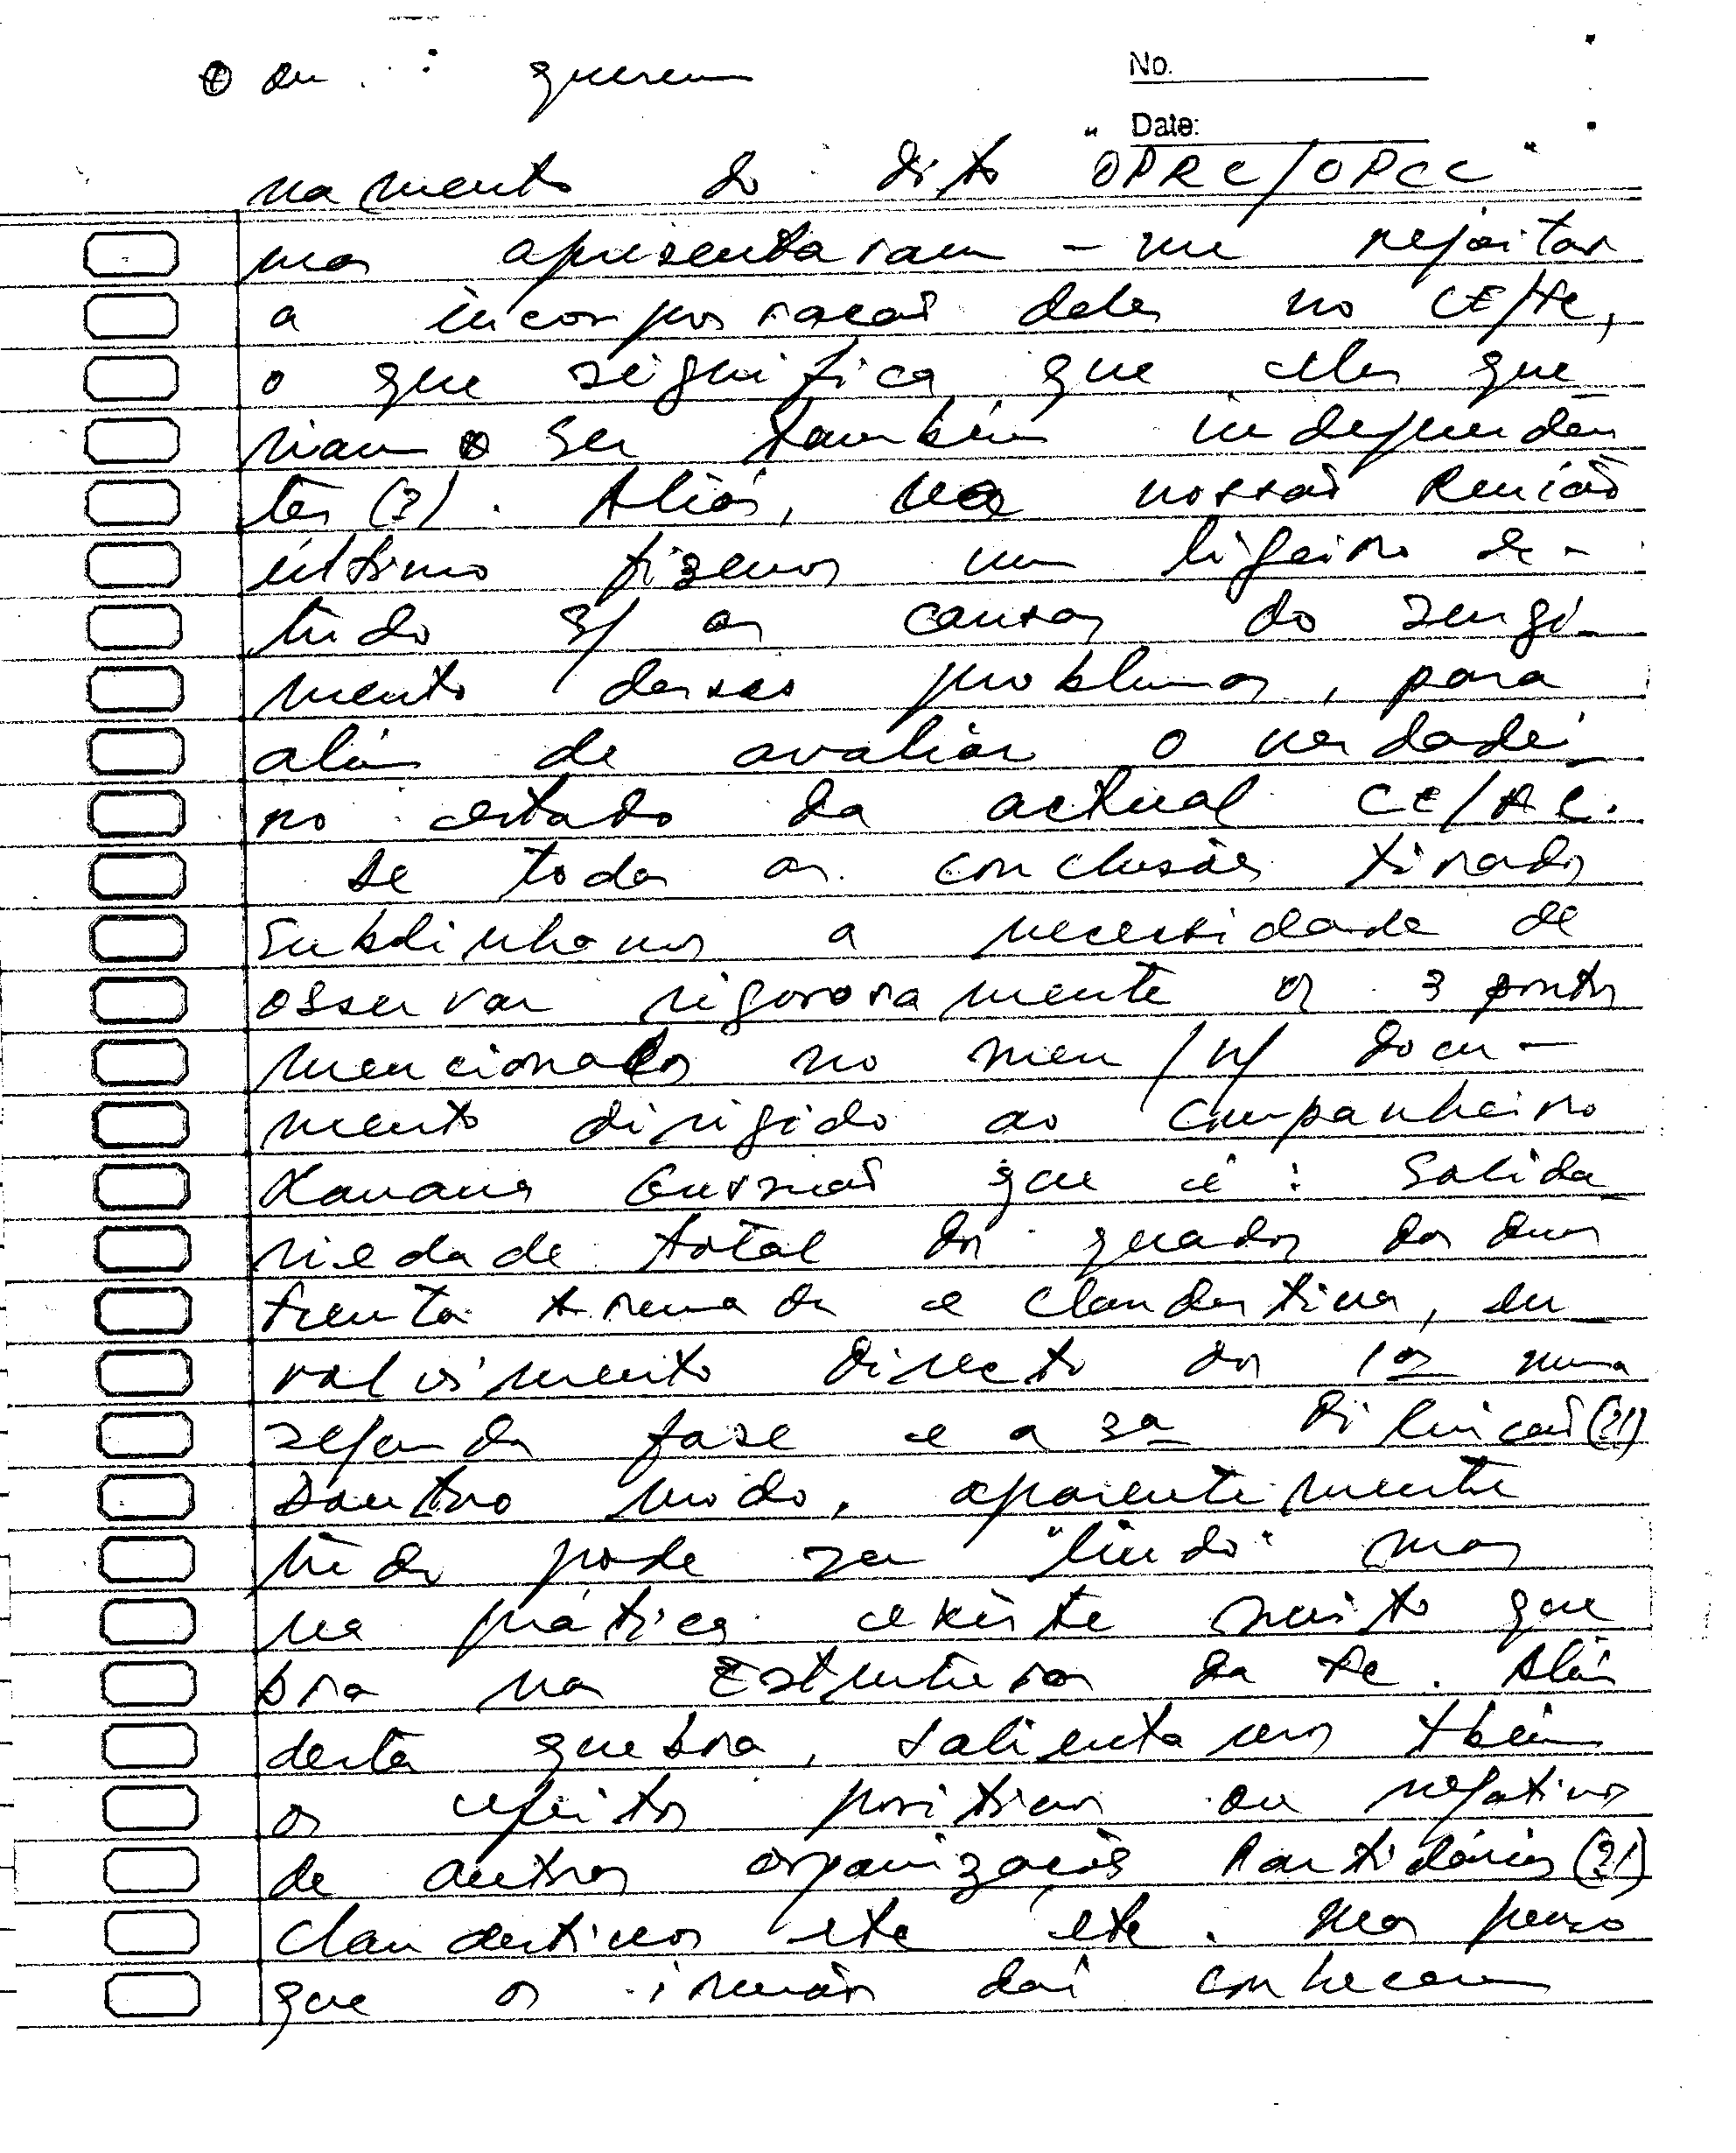 ⊕ ou : querem
No.
Date:
namento do dito "OPRC/OPCC"
mas apresentaram-me rejeitar
a incorporação deles no CE/AC,
o que significa que eles que
riam ser também independen
tes (?). Aliás, na nossa Reunião
último fizemos um ligeiro es-
tudo s/ as causas do surgi-
mento desses problemas, para
além de avaliar o verdadei
ro estado da actual CE/AC.
De todas as conclusões tirados
Sublinhamos a necessidade de
observar rigorosamente os 3 pontos
mencionados no meu/n/ docu-
mento dirigido ao Companheiro
Xanana Gusmão que é: Solida
riedade total dos quados das duas
frente Armada e Clandestina, en
volvimento directo dos 1os numa
segunda fase e a 3a (?)
Doutro modo, aparentemente
tudo pode ser "lindo" mas
na prática existe muito que
bra na Estrutura da AC. Além
desta quebra, salientamos tbém
os efeitos positivos ou negativos
de outros organizações Partidários (?)
clandestinos etc etc. Mas penso
que os irmãos daí conhecem